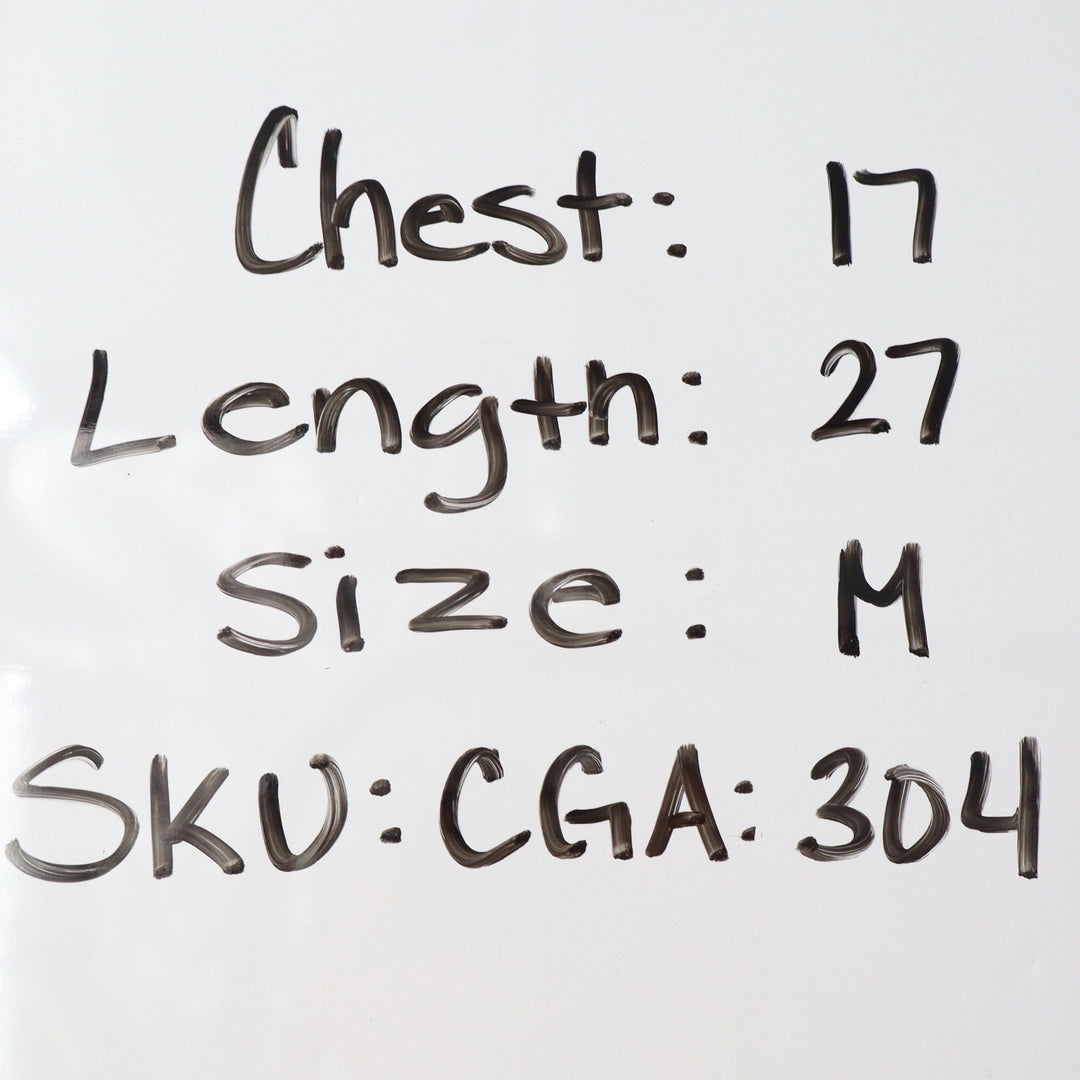 Chest: 17
Length: 27
Size: M
SKU: CGA: 304